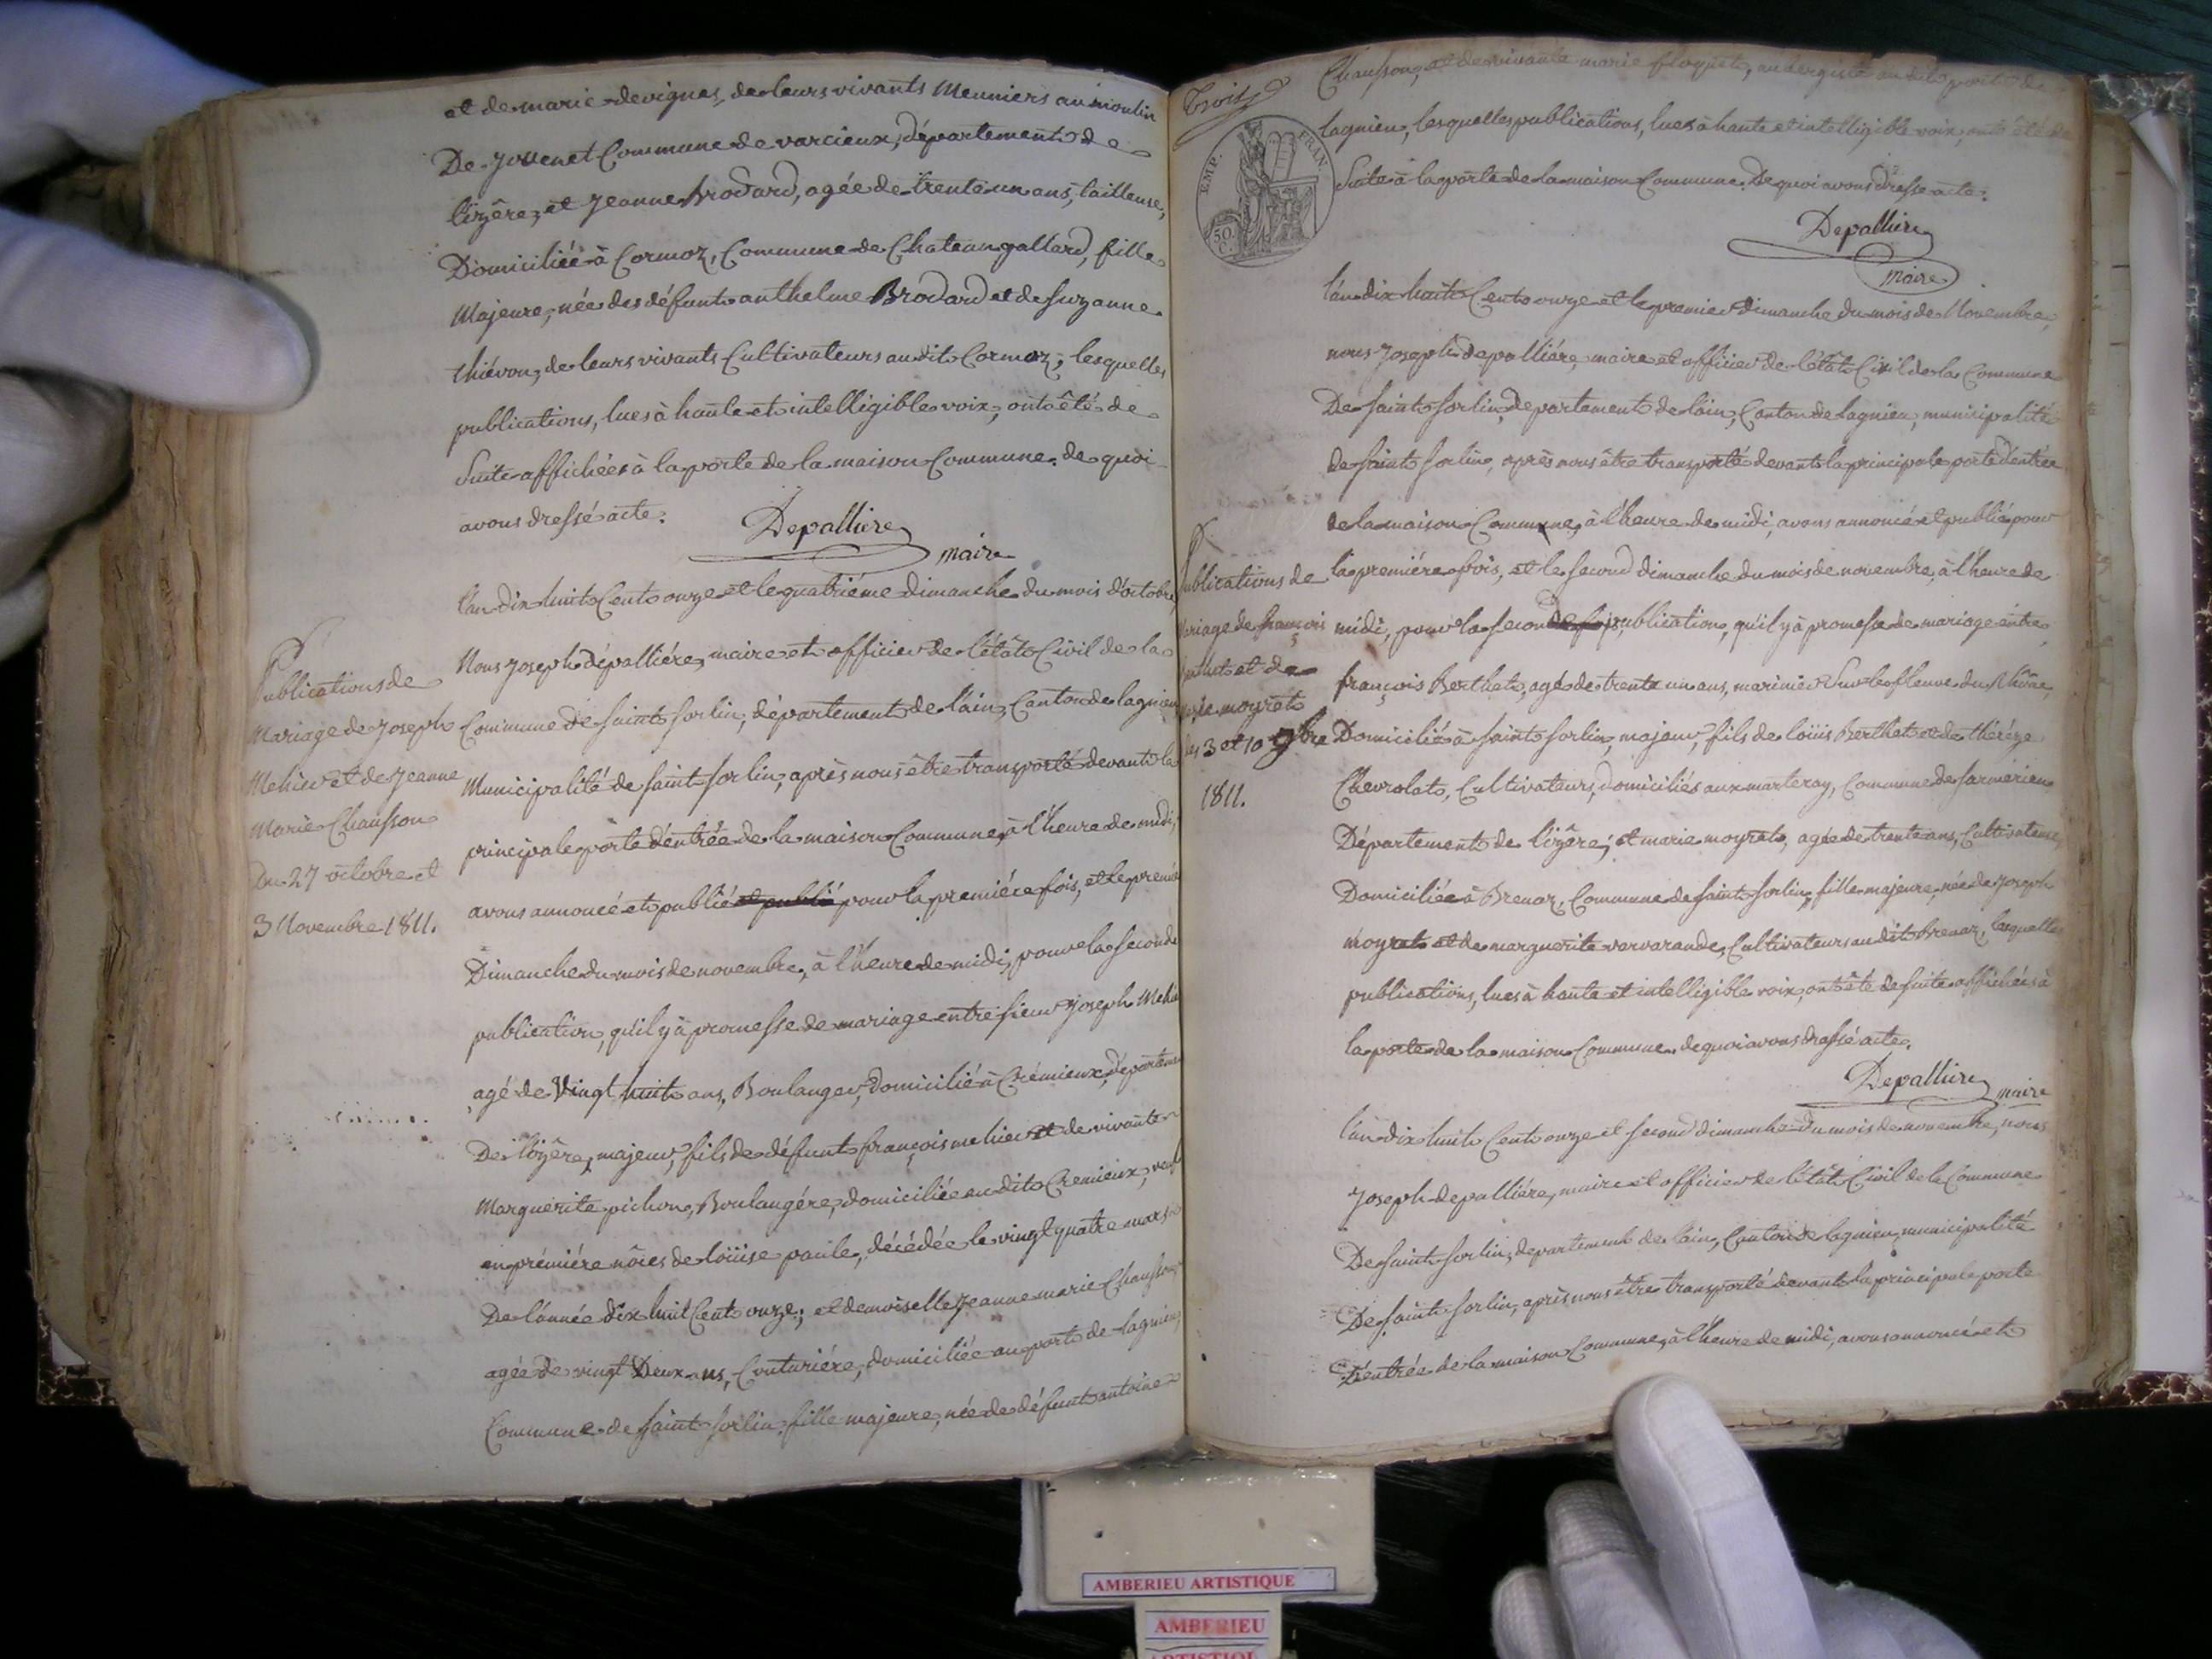 et de marie devignes, de leurs vivants Meuniers au moulin
De jouenet Commune de varcieux, département de
l'izêre, et Jeanne Brodard, agée de trente un ans, tailleuse,
Domiciliée à Cormoz, Commune de Chateaugallard, fille
Majeure, née des défunts anthelme Brodard et de Suzanne
thiévon, de leurs vivants Cultivateurs au dit Cormoz, lesquelles
publications, lues à haute et intelligible voix, ont êté de
Suite affichées à la porte de la maison Commune. de quoi
avons dressé acte.
Depalliere
maire
Publications de
Mariage de Joseph
Mehier et de Jeanne
Marie Chausson
Du 27 octobre et
3 Novembre 1811.
l'an dix huit Cent onze et le quatriéme dimanche du mois d'octobre
Nous Joseph depalliére, maire et officier de l'état Civil de la
Commune de Saint Sorlin, département de l'ain, Canton de lagnieu
Municipalité de Saint Sorlin, après nous être transporté devant la
principale porte d'entrée de la maison Commune, à l'heure de midi,
avons annoncé et publié et publié pour la premiére fois, et le premier
Dimanche du mois de novembre, à l'heure de midi, pour la seconde
publication, qu'il y à promesse de mariage entre sieur Joseph Mehier
agé de Vingt huit ans, Boulanger, domicilié à Crémieux, département
De l'izêre, majeur, fils de défunt françois mehier et de vivante
Marguerite pichon, Boulangére, domiciliée au dit Cremieux, veuf
en prémiére nôces de loüise pacile, décédée le vingt quatre mars
De l'année dix huit Cent onze; et demoiselle Jeanne marie Chausson
agée de vingt Deux ans, Couturiére, domiciliée au port de lagnieu
Commune de Saint Sorlin, fille majeure, née de défunt antoine
Trois
EMP. FRAN.
50 C.
Chausson, et de vivante marie floquet, aubergiste au dit port de
lagnieu, lesquelles publications, lues à haute et intelligible voix, ont êté de
Suite à la porte de la maison Commune. De quoi avons dressé acte.
Depalliere
maire
l'an dix huit Cent onze et le premier dimanche du mois de Novembre,
nous Joseph depalliére, maire et officier de l'état Civil de la Commune
De Saint Sorlin, département de l'ain, Canton de lagnieu, municipalité
de Saint Sorlin, après nous être transporté devant la principale porte d'entrée
de la maison Commune, à l'heure de midi, avons annoncé et publié pour
Publications de
mariage de françois
Berthet et de
marie moyret
les 3 et 10 9bre
1811.
la premiére fois, et le second dimanche du mois de novembre, à l'heure de
midi, pour la seconde fois publication, qu'il y à promesse de mariage entre
françois Berthet, agé de trente un ans, marinier Sur le fleuve du Rhône,
Domicilié à Saint Sorlin, majeur, fils de loüis Berthet et de théréze
Chevrolat, Cultivateurs, domiciliés aux marteray, Commune de Sarmérieu
Département de l'izêre; et marie moyret, agée de trente ans, Cultivateuse,
Domiciliée à Brenaz, Commune de Saint Sorlin, fille majeure, née de Joseph
moyret et de marguerite varvarande, Cultivateurs au dit Brenaz, lesquelles
publications, lues à haute et intelligible voix, ont êté de suite affichées à
la porte de la maison Commune. de quoi avons dressé acte.
Depalliere
maire
l'an dix huit Cent onze et second dimanche du mois de novembre, nous
Joseph depalliére, maire et officier de l'état Civil de la Commune
De Saint Sorlin, département de l'ain, Canton de lagnieu, municipalité
De Saint Sorlin, après nous être transporté devant la principale porte
D'entrée de la maison Commune, à l'heure de midi, avons annoncé et
AMBERIEU ARTISTIQUE
AMBERIEU
ARTISTIQUE